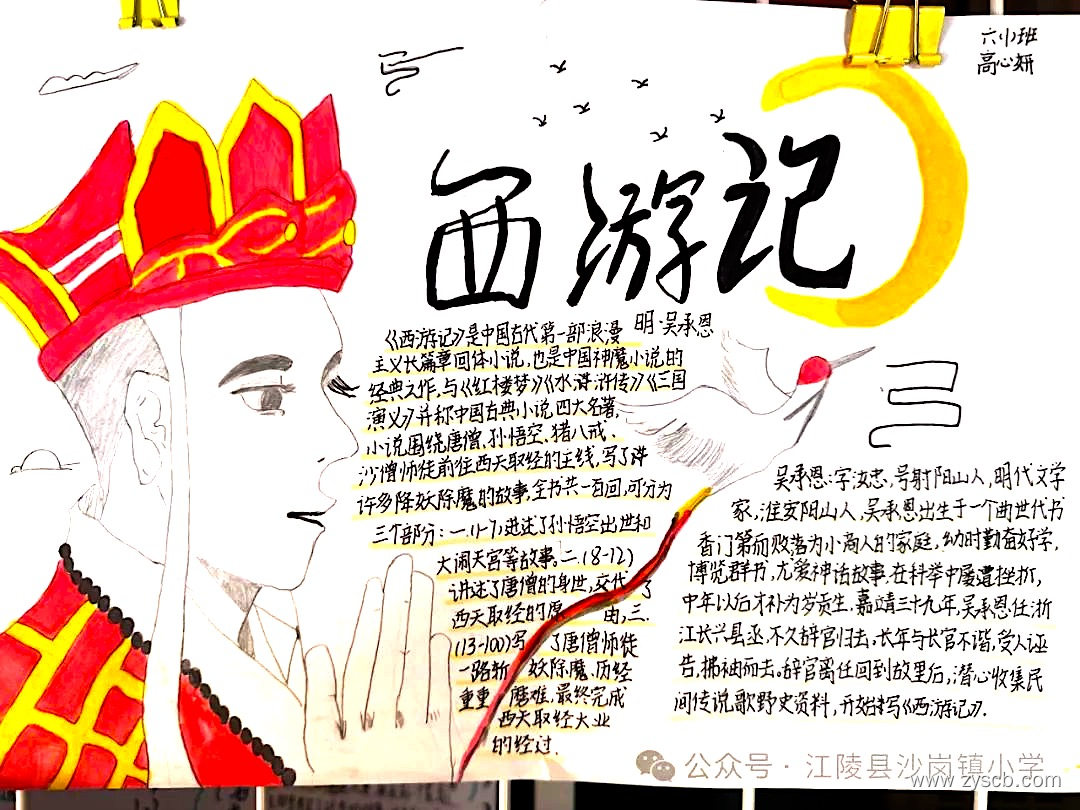 六(1)班
高心妍
西游记
明·吴承恩
《西游记》是中国古代第一部浪漫
主义长篇章回体小说,也是中国神魔小说的
经典之作,与《红楼梦》《水浒传》《三国
演义》并称中国古典小说四大名著,
小说围绕唐僧、孙悟空、猪八戒、
沙僧师徒前往西天取经的主线,写了许
许多降妖除魔的故事,全书共一百回,可分为
三个部分:一.(1-7)讲述了孙悟空出世和
大闹天宫等故事。二.(8-12)
讲述了唐僧的身世,交代了
西天取经的原由,三.
(13-100)写了唐僧师徒
一路斩妖除魔,历经
重重磨难,最终完成
西天取经大业
的经过.
吴承恩:字汝忠,号射阳山人,明代文学
家,淮安阳山人,吴承恩出生于一个由世代书
香门第而败落为小商人的家庭,幼时勤奋好学,
博览群书,尤爱神话故事.在科举中屡遭挫折,
中年以后才补为岁贡生.嘉靖三十九年,吴承恩任浙
江长兴县丞,不久辞官归去,长年与长官不谐,受人诬
告,拂袖而去。辞官离任回到故里后,潜心收集民
间传说歌野史资料,开始撰写《西游记》.
公众号·江陵县沙岗镇小学
www.zyscb.com